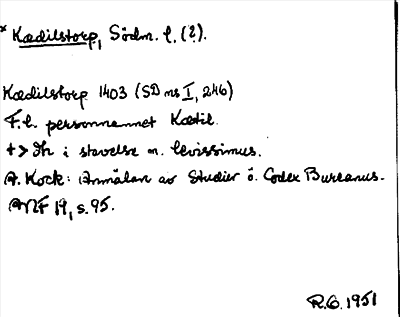 * Kædilstorp, Södm. l. (?).
Kædilstorp 1403 (SD ns I, 246)
F.l. personnamnet Kætil.
t > dh i stavelse m. levissimus.
A. Kock: Anmälan av Studier ö. Codex Bureanus.
ANF 19, s. 95.
R.G. 1951